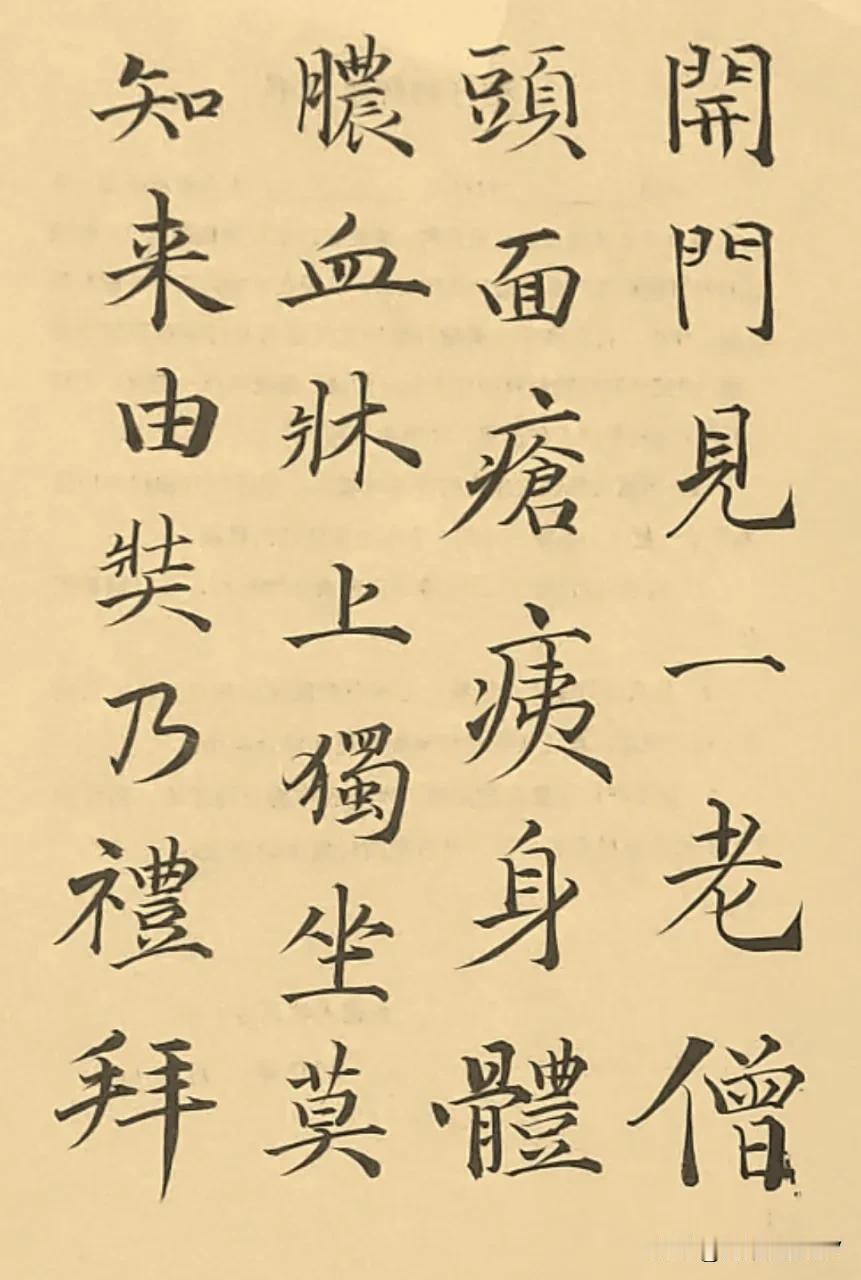 開門見一老僧
頭面瘡痍身體
膿血牀上獨坐莫
知来由奘乃禮拜